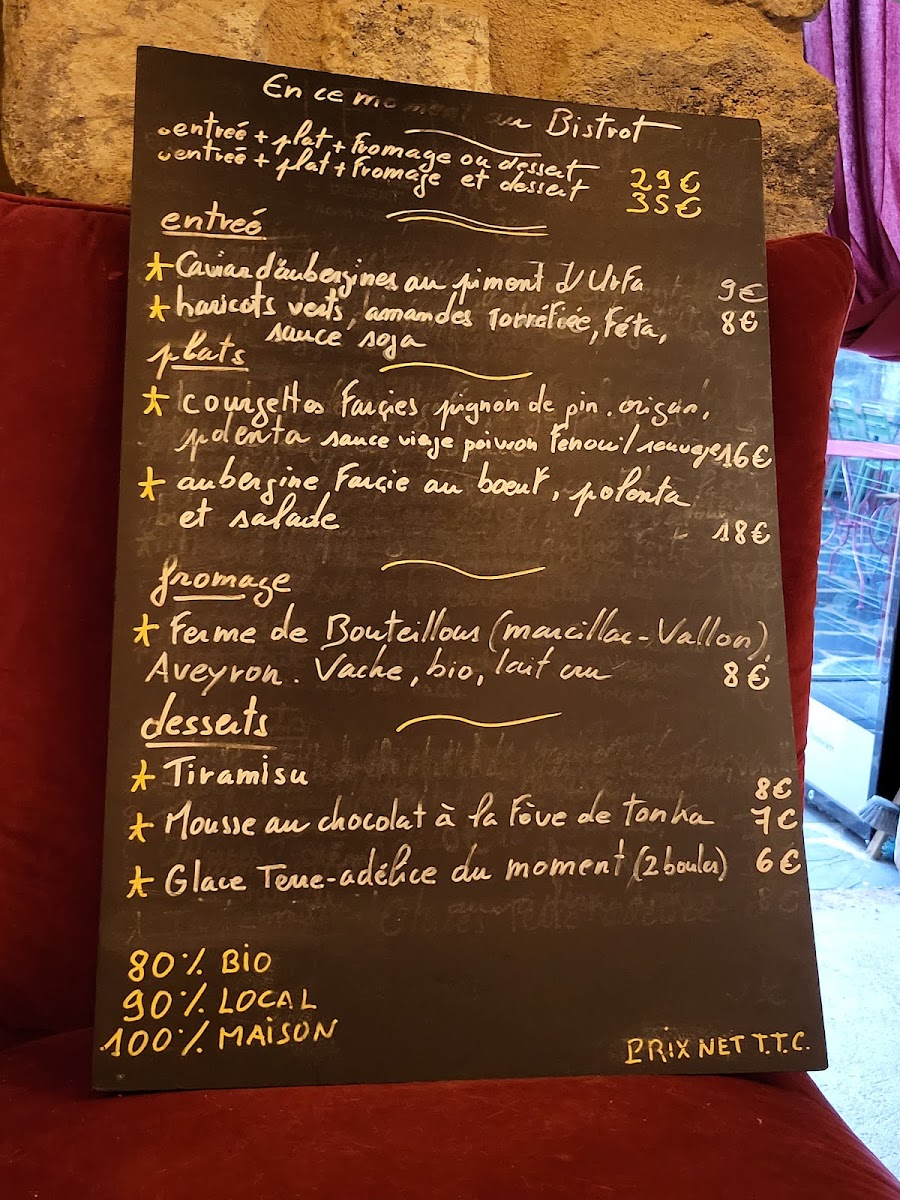 En ce moment au Bistrot
entreé + plat + fromage ou dessert 29€
entreé + plat + fromage et dessert 35€
entreé
Caviar d'aubergines au piment d'Urfa 9€
haricots verts, amandes torréfiée, féta, 8€
sauce soja
plats
courgettes farçies pignon de pin, origan,
polenta sauce vierge poivron fenouil sauvage 16€
aubergine farçie au boeuf, polenta
et salade 18€
fromage
Ferme de Bouteillous (marcillac-Vallon),
Aveyron. Vache, bio, lait cru 8€
desserts
Tiramisu 8€
Mousse au chocolat à la fève de tonka 7€
Glace Terre-adélice du moment (2 boules) 6€
80% BIO
90% LOCAL
100% MAISON
PRIX NET T.T.C.